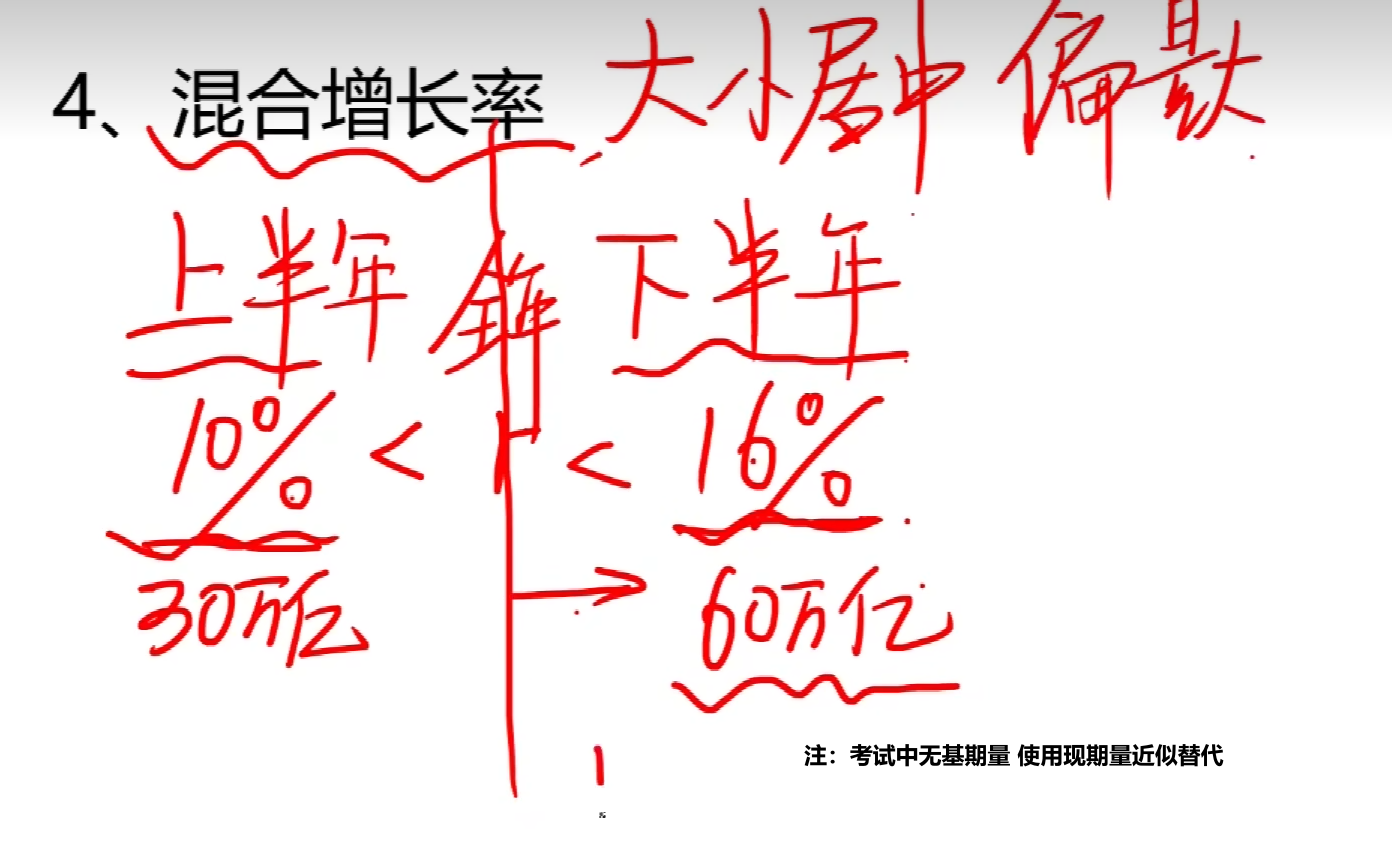 4、混合增长率 大小居中 偏最大
上半年 全年 下半年
10% < r < 16%
30万亿 60万亿
注：考试中无基期量 使用现期量近似替代